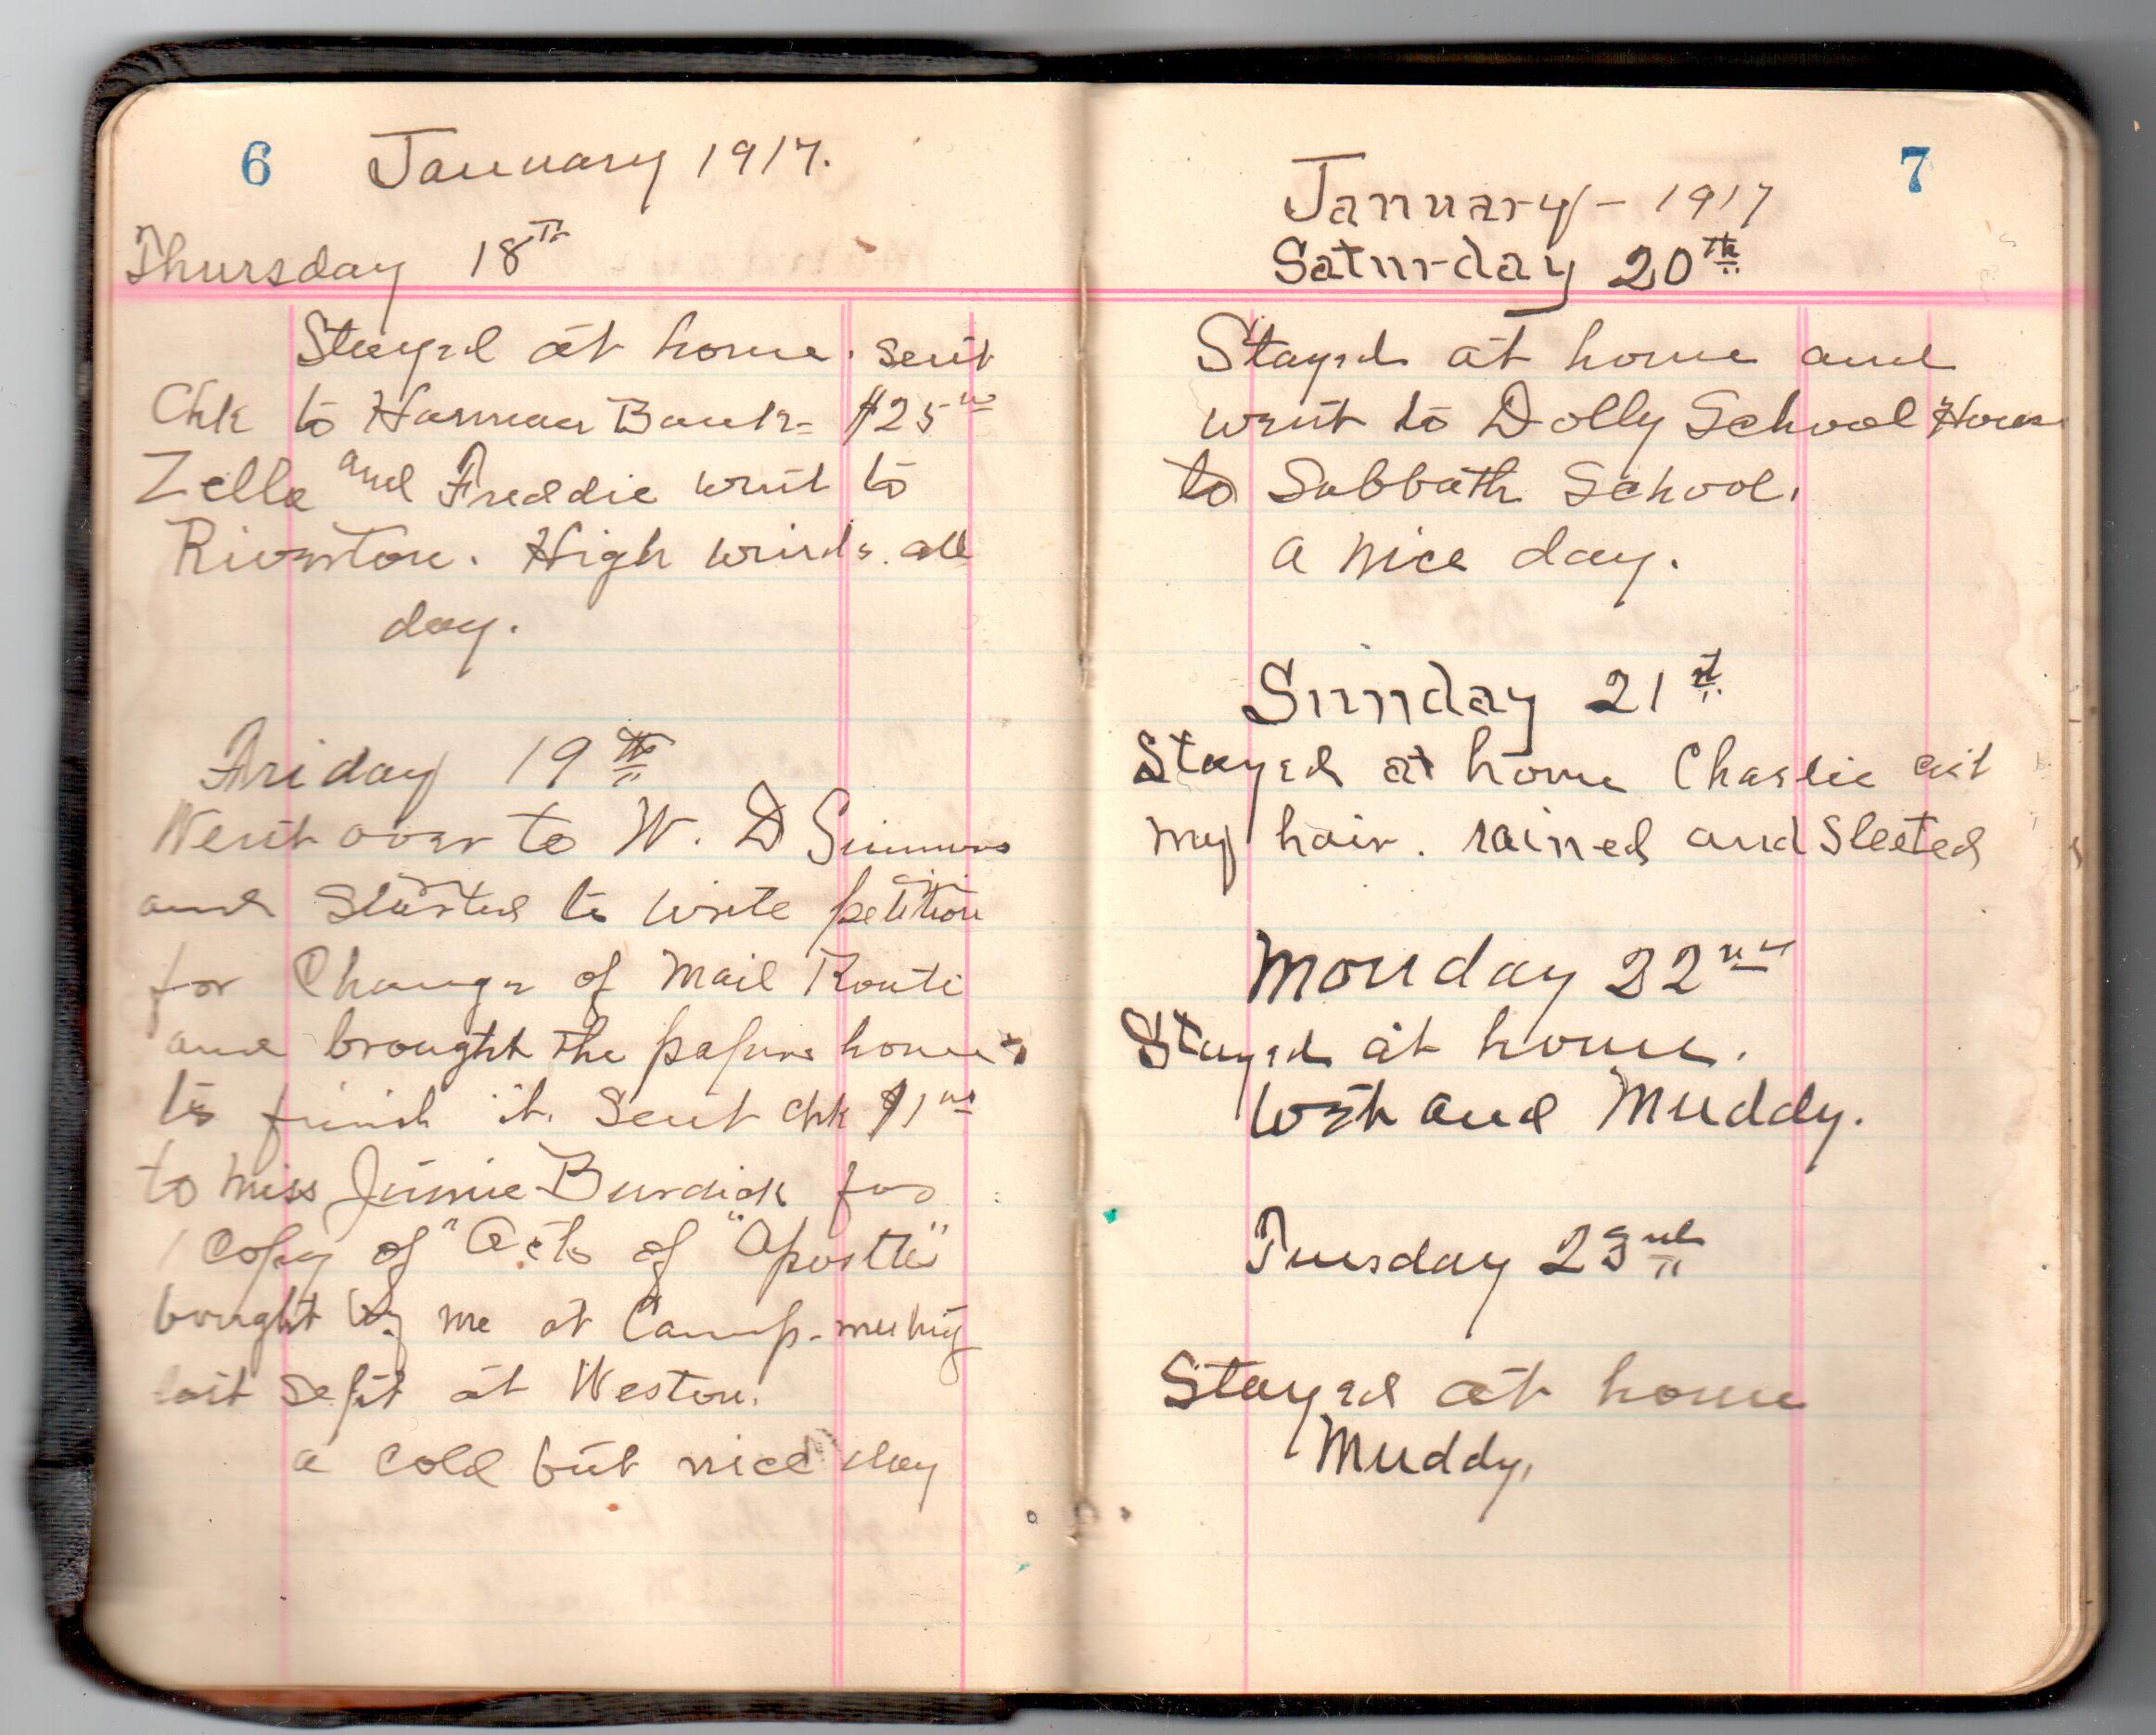 6 January 1917.
Thursday 18th
Stayed at home. sent
Chk to Harman Bank = $25 00
Zella and Freddie went to
Riverton. High winds all
day.
Friday 19th
Went over to W. D Simmons
and started to write petition
for Change of Mail Route
and brought the papers home
to finish it. Sent chk $1 00
to Miss Jinnie Burdick for
1 Copy of "Acts of "Apostle"
bought by me at Camp-meeting
last Sept at Weston.
a cold but nice day
7
January - 1917
Saturday 20th
Stayed at home and
went to Dolly School House
to Sabbath School.
a nice day.
Sunday 21st
Stayed at home Charlie cut
my hair. rained and Sleeted
Monday 22nd
Stayed at home.
Wet and Muddy.
Tuesday 23rd
Stayed at home
Muddy.